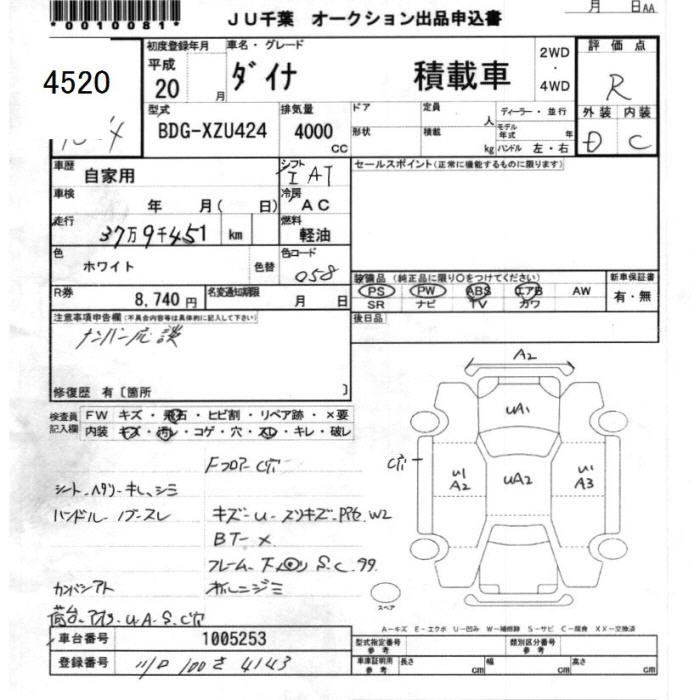 *0010081*
JU千葉 オークション出品申込書
月 日AA
4520
初度登録年月
平成
20 月
車名・グレード
ダイナ 積載車
2WD
・
4WD
評価点
R
外装 内装
D C
型式
BDG-XZU424
排気量
4000
CC
ドア
形状
定員
人
積載
kg
ディーラー・並行
モデル年式 年
ハンドル 左・右
車歴
自家用
シフト
I AT
セールスポイント(正常に機能するものに限ります)
車検
年 月( 日)
冷房
AC
走行
37万9千451 km
燃料
軽油
色
ホワイト
色替
色コード
058
装備品(純正品に限り○をつけてください)
PS PW ABS エアB AW
SR ナビ TV カワ
新車保証書
有・無
R券
8,740円
名変通知期限
月 日
後日品
注意事項申告欄(不具合内容等は具体的に記入して下さい)
ナンバー応談
修復歴 有〔箇所 〕
検査員
記入欄
FW キズ・飛石・ヒビ割・リペア跡・×要
内装 キズ・汚レ・コゲ・穴・スレ・キレ・破レ
A2
UA1
C穴
U1
A2
UA2
U1
A3
スペア
Fフロアー C穴
シート、ヘタリ・キレ、シミ
ハンドル
キズ・U・スリキズ・P他 W2
BT-X
フレーム・下
S.C.
カンバンアト
荷台
U.A.S.C穴
A-キズ E-エクボ U-凹み W-補修跡 S-サビ C-腐食 XX-交換済
車台番号
1005253
登録番号
100 4143
型式指定番号
参考
類別区分番号
参考
車庫証明用
参考
長さ cm
幅 cm
高さ cm